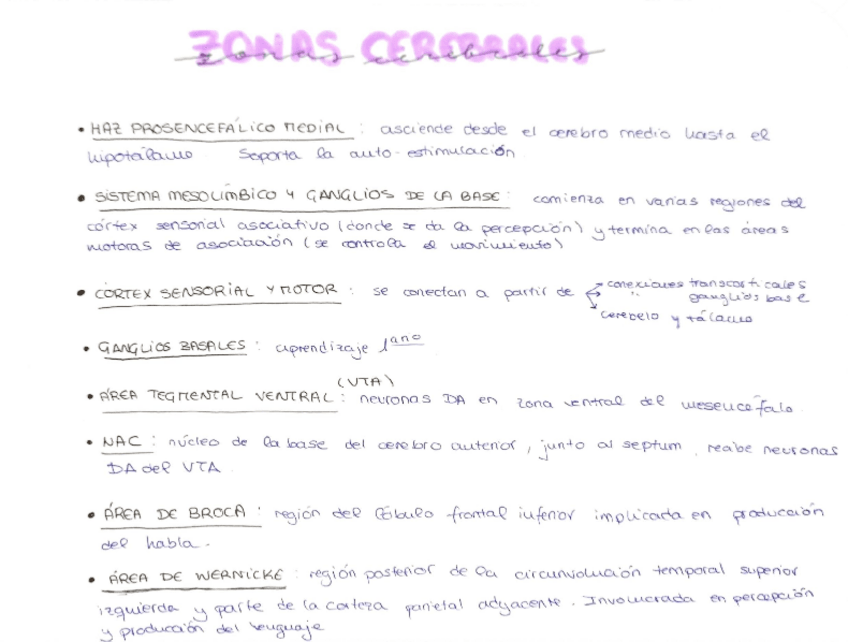 ZONAS CEREBRALES
zonas cerebrales
• HAZ PROSENCEFÁLICO MEDIAL : asciende desde el cerebro medio hasta el
hipotálamo. Soporta la auto-estimulación.
• SISTEMA MESOLÍMBICO Y GANGLIOS DE LA BASE : comienza en varias regiones del
córtex sensorial asociativo (donde se da la percepción) y termina en las áreas
motoras de asociación (se controla el movimiento)
• CÓRTEX SENSORIAL Y MOTOR : se conectan a partir de → conexiones transcorticales
→ " ganglios base
→ cerebelo y tálamo
• GANGLIOS BASALES : aprendizaje 1ario
(VTA)
• ÁREA TEGMENTAL VENTRAL : neuronas DA en zona ventral del mesencéfalo.
• NAC : núcleo de la base del cerebro anterior, junto al septum, recibe neuronas
DA del VTA.
• ÁREA DE BROCA : región del lóbulo frontal inferior implicada en producción
del habla.
• ÁREA DE WERNICKE : región posterior de la circunvolución temporal superior
izquierda y parte de la corteza parietal adyacente. Involucrada en percepción
y producción del lenguaje